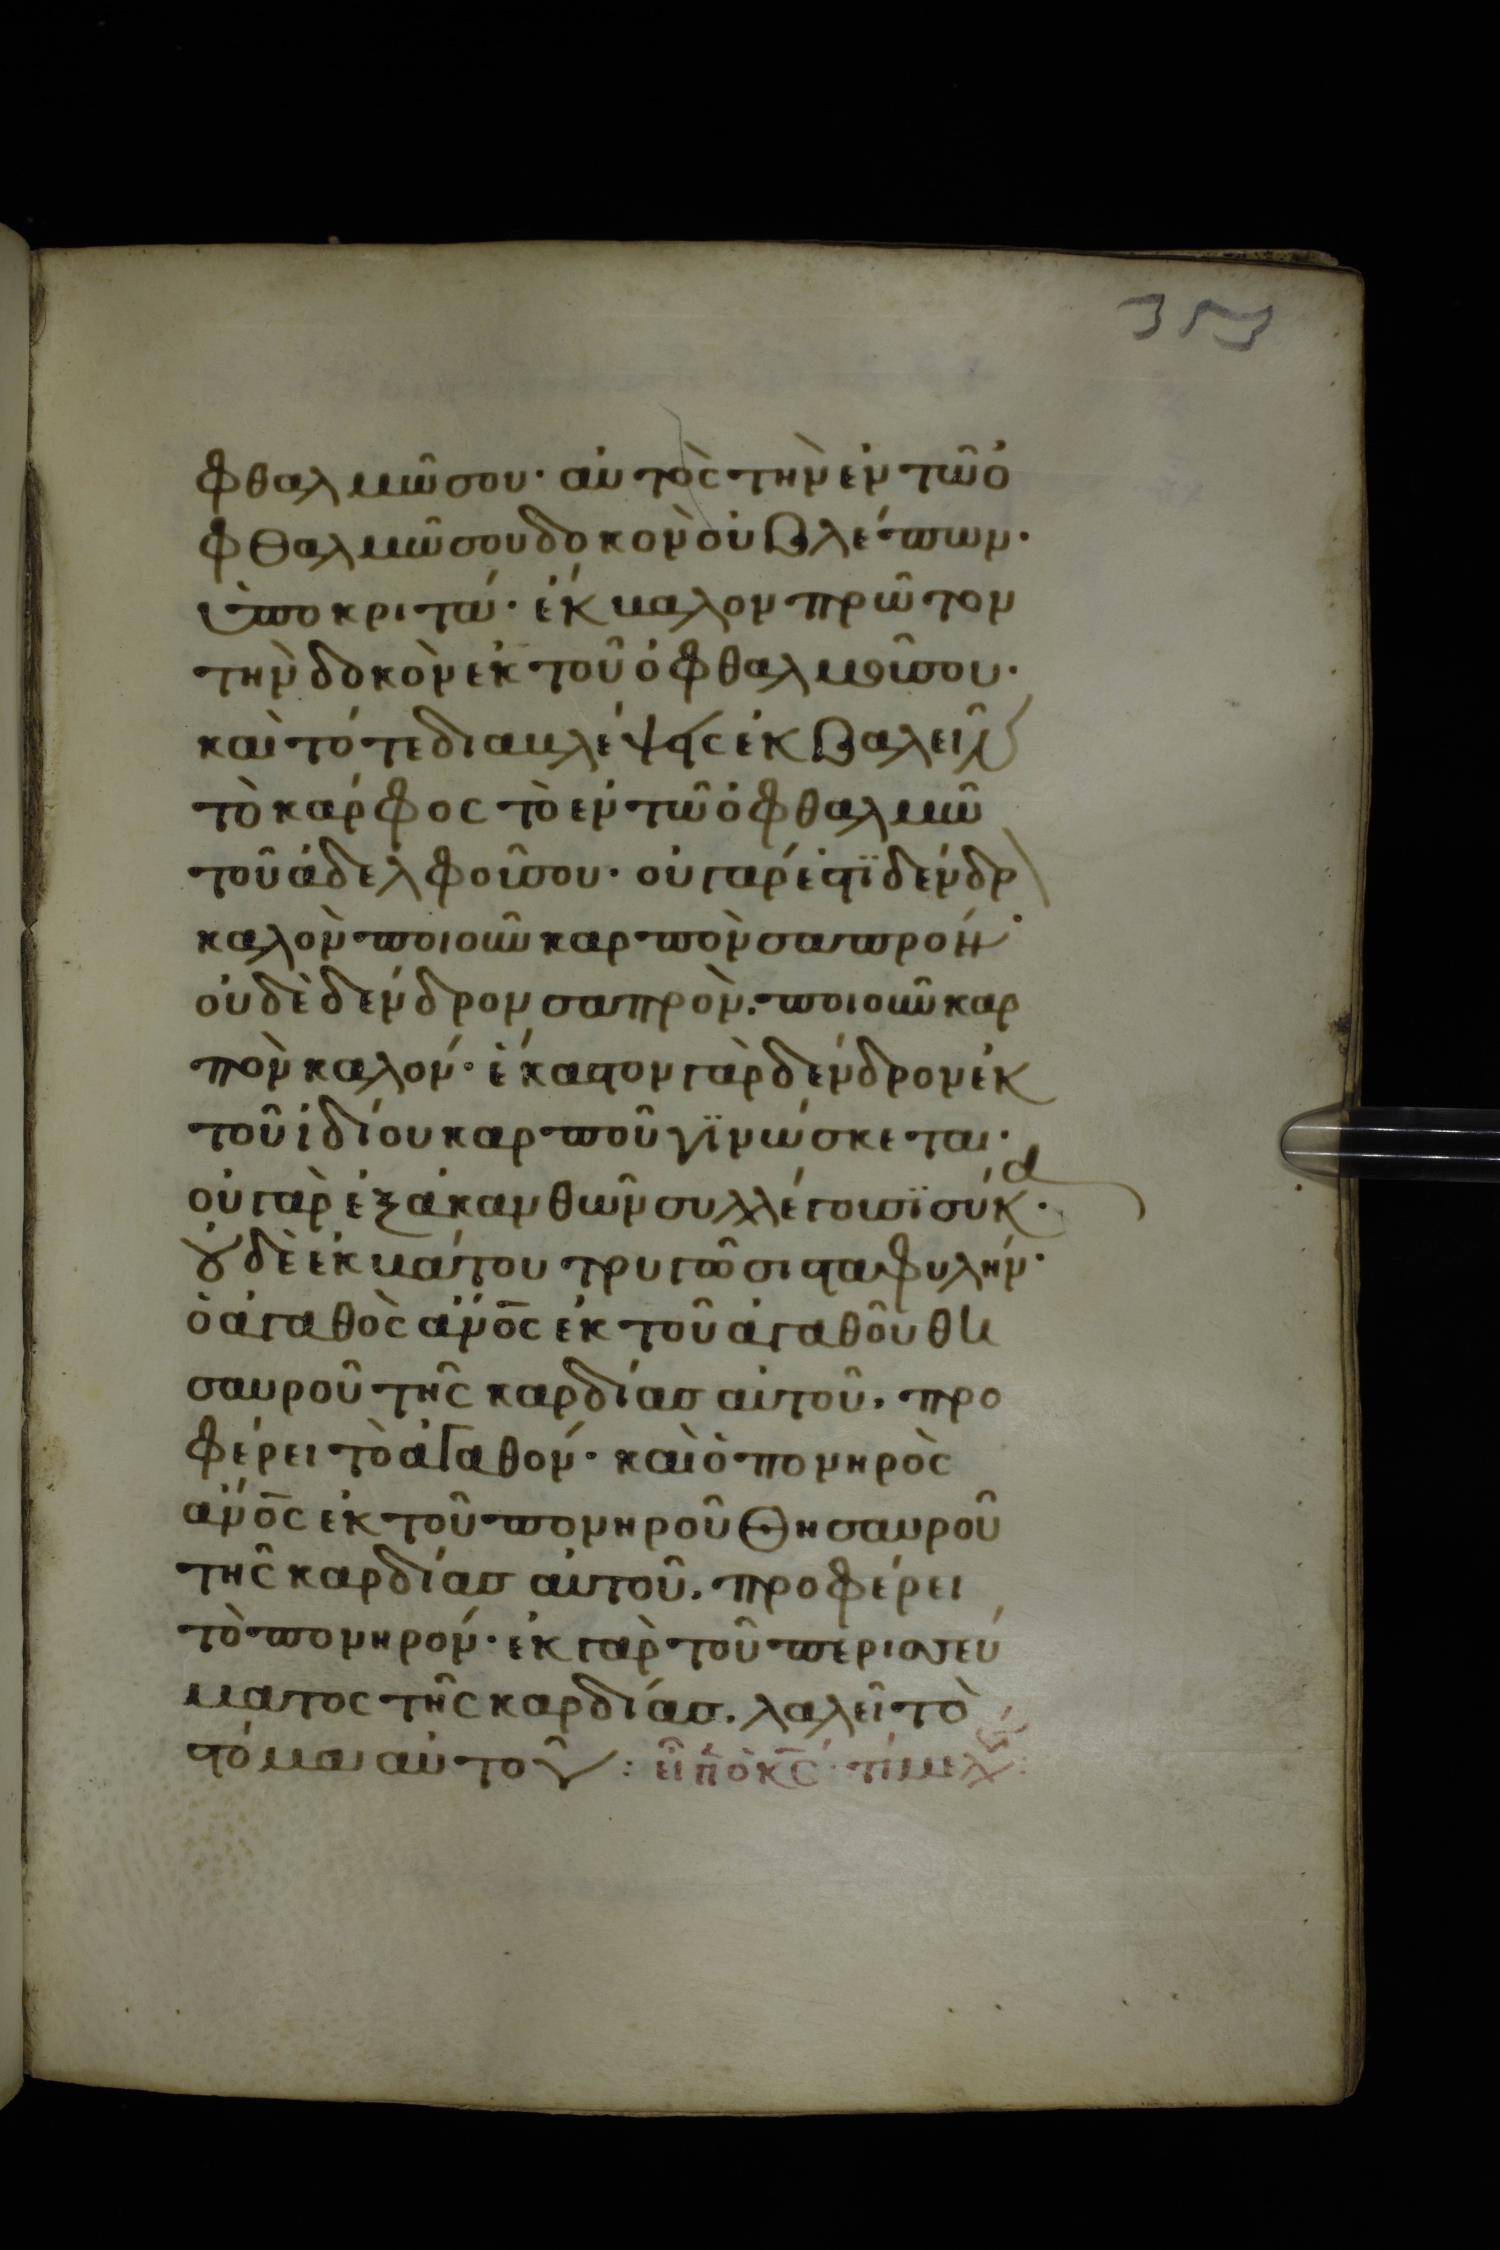 353
φθαλμῶ σου· αὐτὸς τὴν ἐν τῶ ὀ
φθαλμῶ σου δοκὸν οὐ βλέπων·
ὑποκριτά· ἔκβαλον πρῶτον
τὴν δοκὸν ἐκ τοῦ ὀφθαλμοῦ σου·
καὶ τότε διαβλέψῃς ἐκβαλεῖν
τὸ κάρφος τὸ ἐν τῶ ὀφθαλμῶ
τοῦ ἀδελφοῦ σου· οὐ γάρ ἐστϊ δένδρ
καλὸν ποιοῦν καρπὸν σαπρόν·
οὐδὲ δένδρον σαπρὸν. ποιοῦν καρ
πὸν καλόν· ἕκαστον γὰρ δένδρον ἐκ
τοῦ ἰδίου καρποῦ γϊνώσκεται·
οὐ γὰρ ἐξ ἀκανθῶν συλλέγουσϊ σύκα·
οὐδὲ ἐκ βάτου τρυγῶσι σταφυλήν·
ὁ ἀγαθὸς ἄνος ἐκ τοῦ ἀγαθοῦ θη
σαυροῦ τῆς καρδίας αὐτοῦ. προ
φέρει τὸ ἀγαθόν· καὶ ὁ πονηρὸς
ἄνος ἐκ τοῦ πονηροῦ θησαυροῦ
τῆς καρδίας αὐτοῦ. προφέρει
τὸ πονηρόν· ἐκ γὰρ τοῦ περισσεύ
ματος τῆς καρδίας. λαλεῖ τὸ
στόμα αὐτοῦ : εἶπ ὁ κς· τί με λ